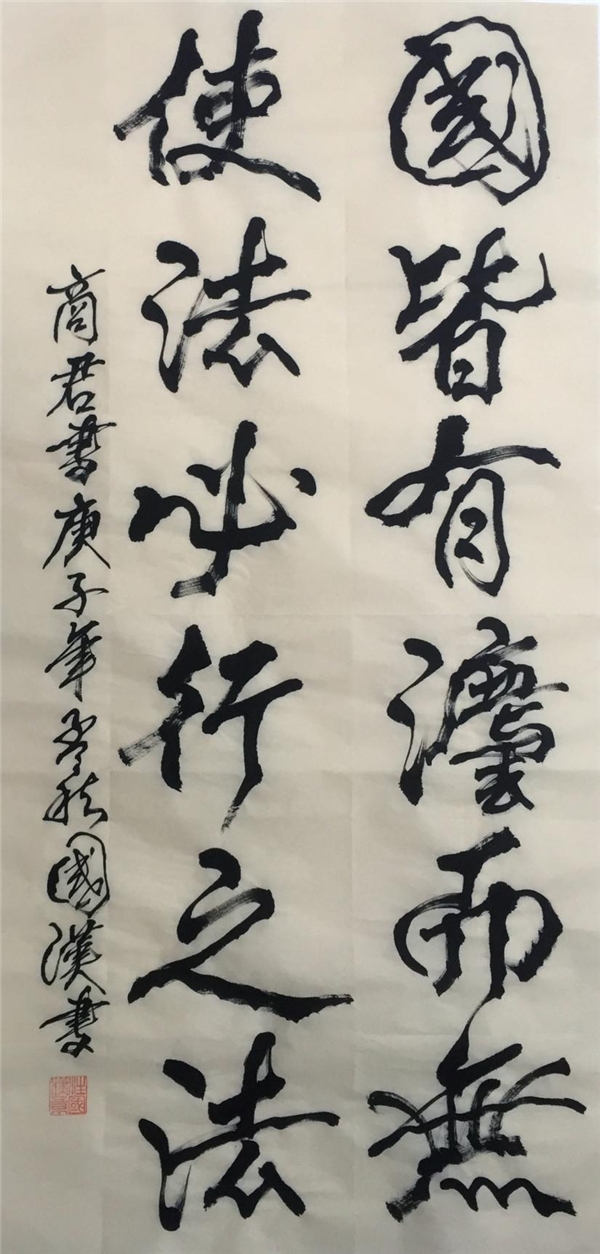 國皆有灋而無
使法必行之法
商君書庚子年孟秋國漢書